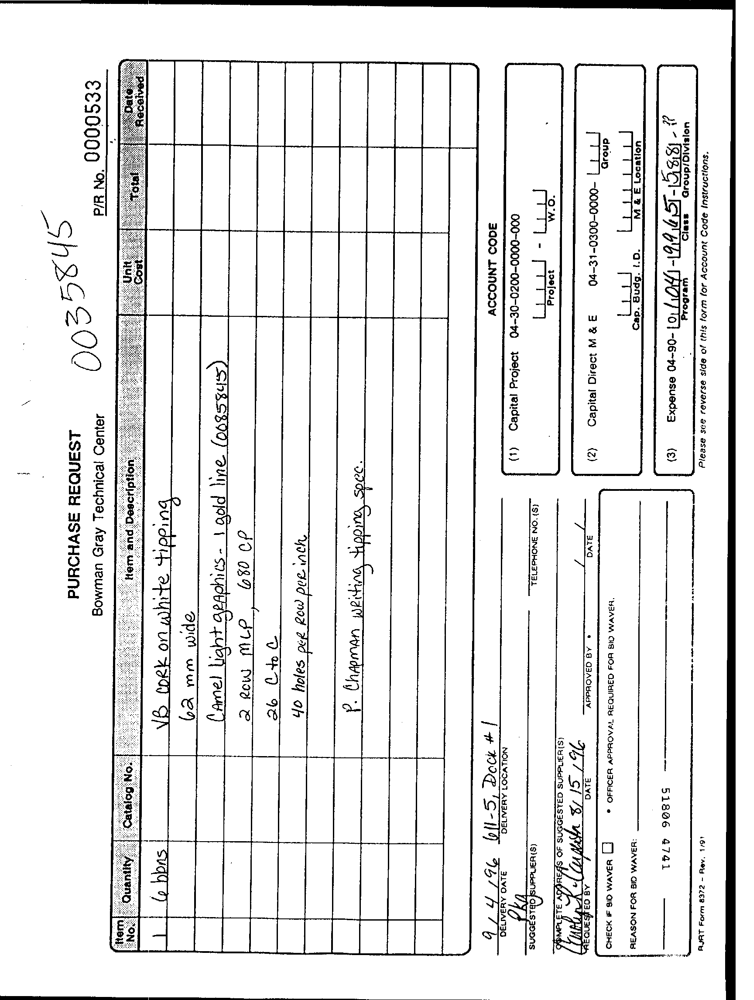 PURCHASE REQUEST
Bowman Gray Technical Center
0035845
P/R No. 0000533
Item No. Quantity Catalog No. Item and Description Unit Cost Total Date Received
1 6 bbns VB CORK on white tipping
62 mm wide
CAmel light gRAphics - 1 gold line (0085845)
2 Row MLP, 680 CP
26 C to C
40 holes per Row per inch
P. ChAPMAN WRiting tipping spec.
9/4/96 611-5, Dock #1
DELIVERY DATE DELIVERY LOCATION
SUGGESTED SUPPLIER(S) TELEPHONE NO.(S)
COMPLETE ADDRESS OF SUGGESTED SUPPLIER(S)
8/15/96 / /
REQUESTED BY DATE APPROVED BY * DATE
CHECK IF BID WAVER * OFFICER APPROVAL REQUIRED FOR BID WAVER.
REASON FOR BID WAVER:
51806 4741
RJRT Form 8372 - Rev. 1/91
ACCOUNT CODE
(1) Capital Project 04-30-0200-0000-000
Project - W.O.
(2) Capital Direct M & E 04-31-0300-0000-
Group
Cap. Budg. I.D. M & E Location
(3) Expense 04-90-0104-1-9965-588-??
Program Class Group/Division
Please see reverse side of this form for Account Code Instructions.